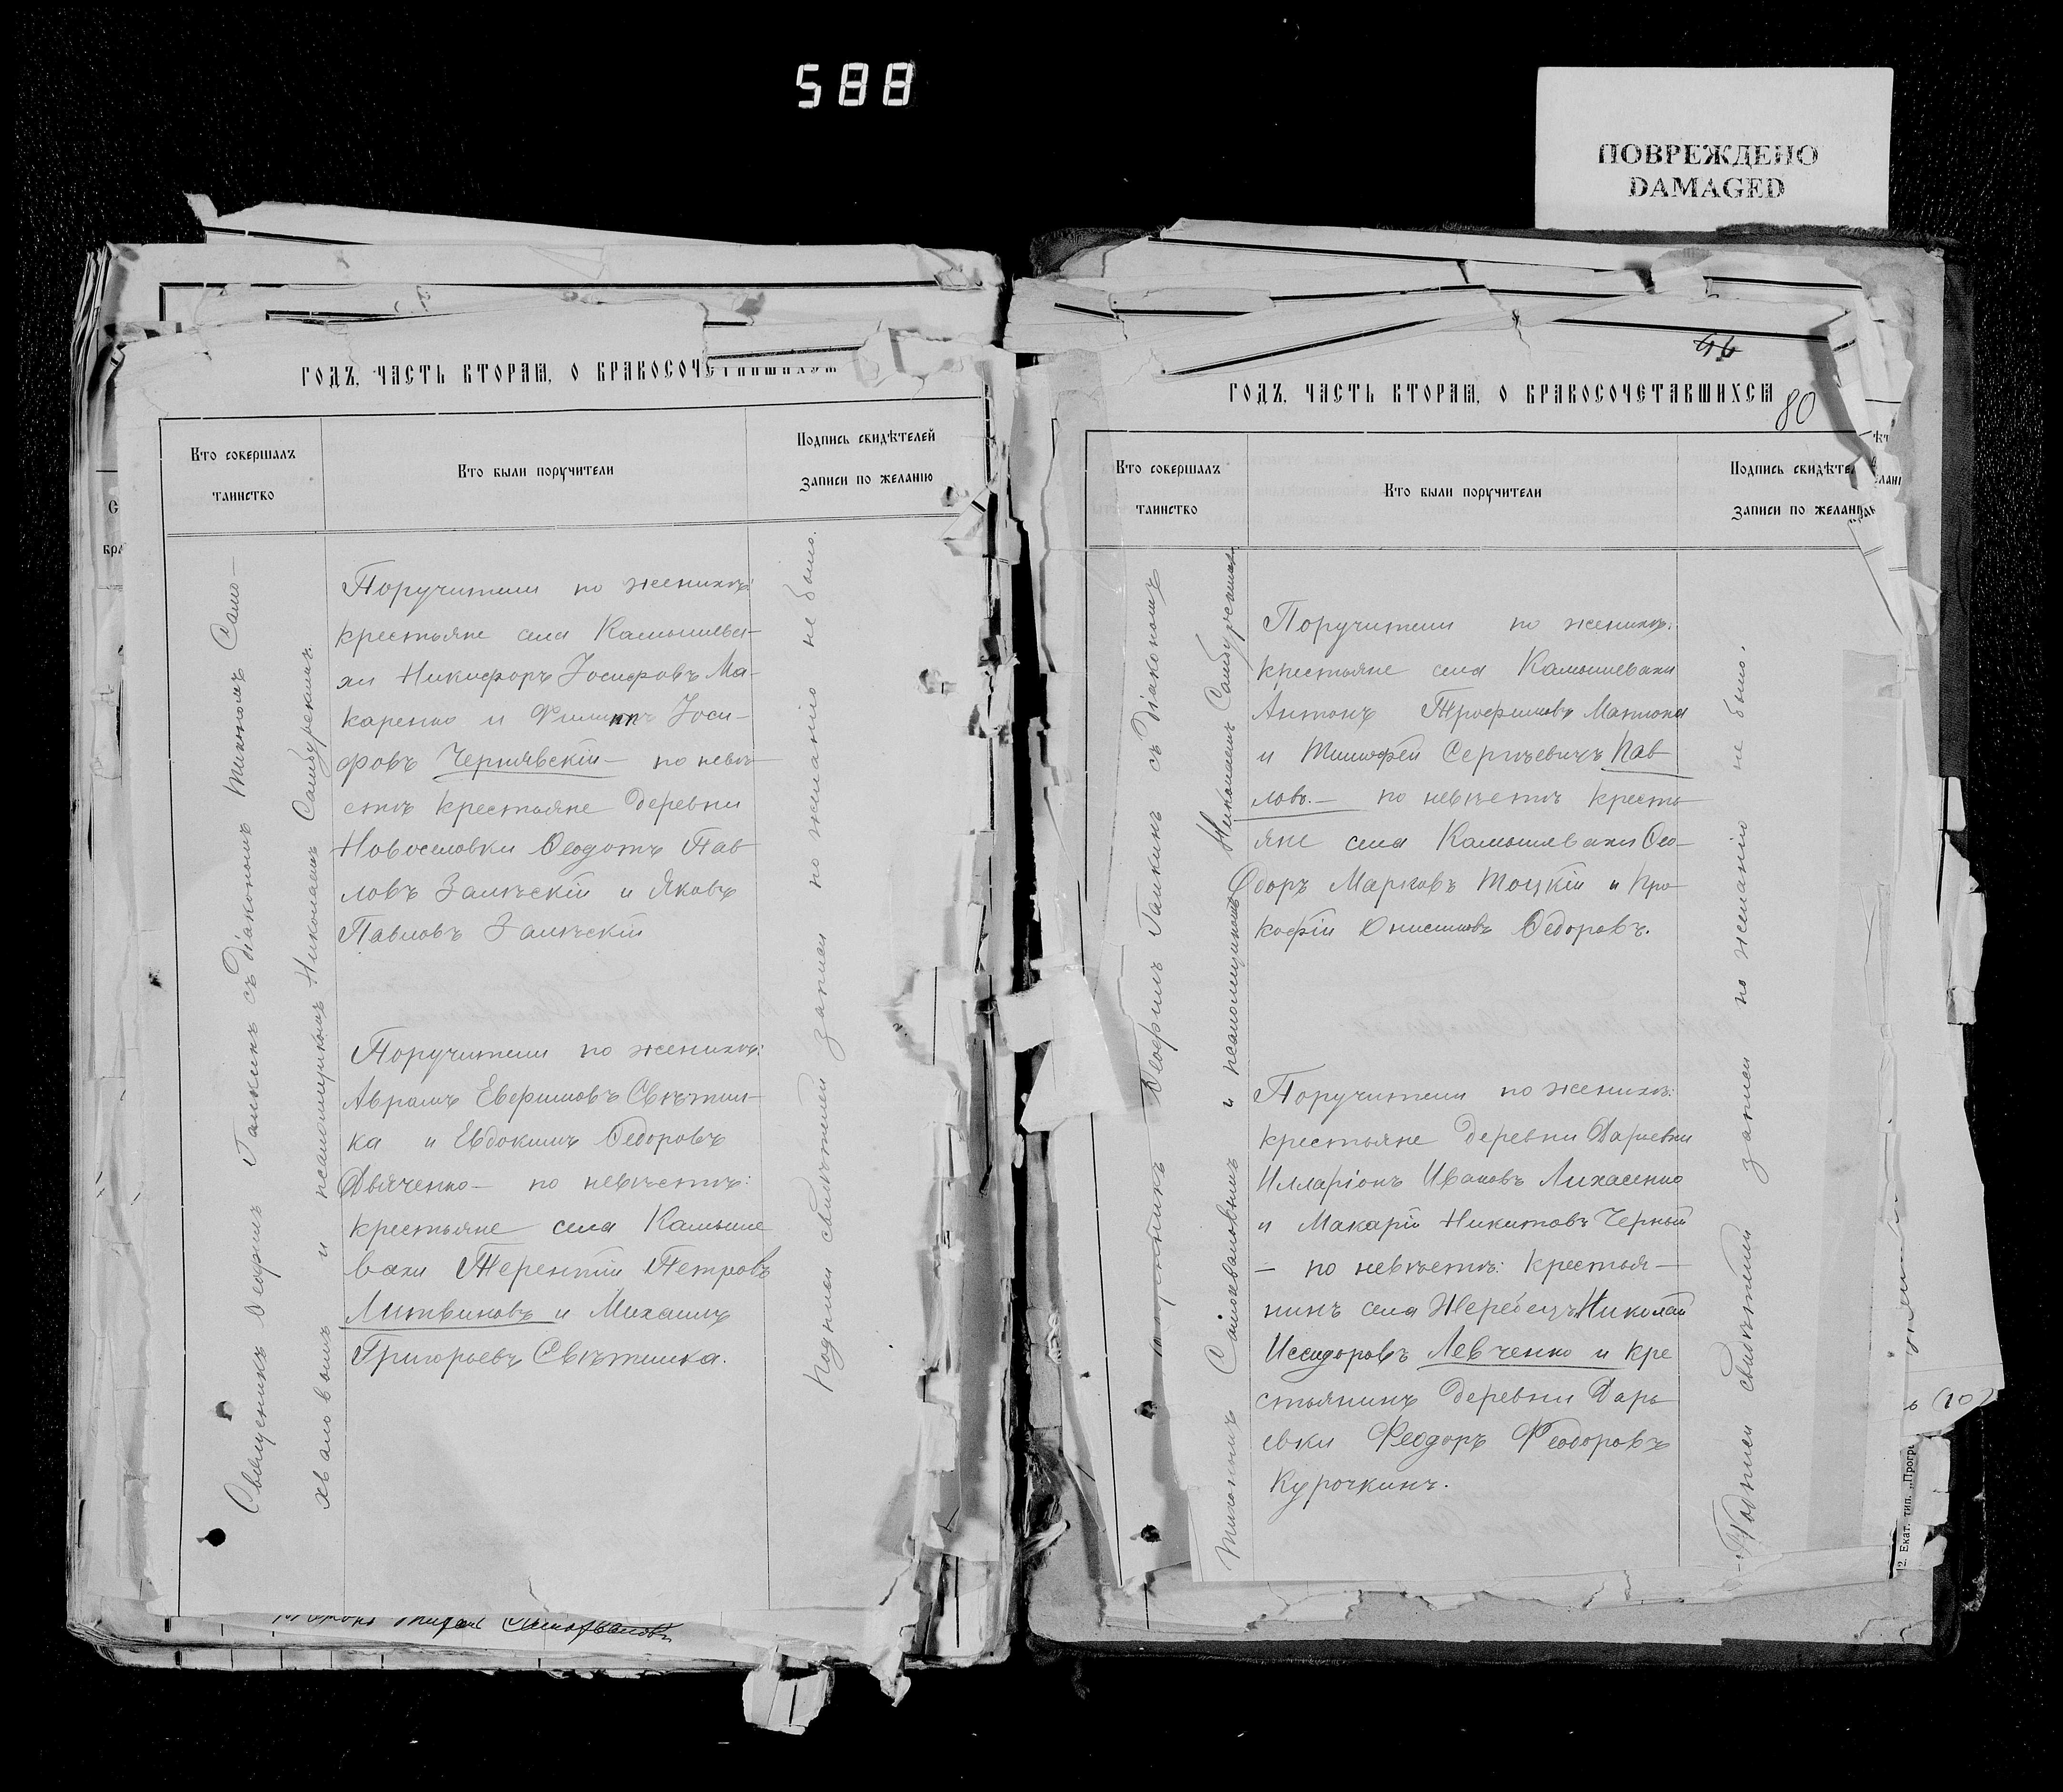 588
ПОВРЕЖДЕНО
DAMAGED
ГОДЪ, ЧАСТЬ ВТОРАЯ, О БРАКОСОЧЕТАВШИХСЯ
Кто совершалъ
таинство
Кто были поручители
Подпись свидѣтелей
записи по желанію
Священникъ Ѳеофилъ Галкинъ съ діакономъ Тихономъ Само-
хваловымъ и псаломщикомъ Николаемъ Самбурскимъ.
Поручители по женихѣ:
крестьяне села Камышева-
хи Никифоръ Іосифовъ Ма-
каренко и Филиппъ Іоси-
фовъ Чернявскій — по невѣ-
стѣ крестьяне деревни
Новоселовки Ѳеодотъ Пав-
ловъ Залѣскій и Яковъ
Павловъ Залѣскій
Поручители по женихѣ:
Авраамъ Евфимовъ Свѣтли-
ка и Евдокимъ Ѳедоровъ
Дьяченко — по невѣстѣ:
крестьяне села Камыше
вахи Терентій Петровъ
Литвиновъ и Михаилъ
Григорьевъ Свѣтлика.
Подписи свидѣтелей записи по желанію не было.
44
80
ГОДЪ, ЧАСТЬ ВТОРАЯ, О БРАКОСОЧЕТАВШИХСЯ
Кто совершалъ
таинство
Кто были поручители
Подпись свидѣтел
записи по желанію
Ѳеофилъ Галкинъ съ діакономъ
Тихономъ Самохваловымъ и псаломщикомъ Николаемъ Самбурскимъ
Поручители по женихѣ:
крестьяне села Камышевахи
Антонъ Трофимовъ Матюха
и Тимофей Сергѣевичъ Пав
ловъ. — по невѣстѣ кресть
яне села Камышевахи Ѳео-
доръ Марковъ Тоцкій и Про
кофій Онисимовъ Ѳедоровъ.
Поручители по женихѣ:
крестьяне деревни Дарьевки
Илларіонъ Ивановъ Лихасенко
и Макарій Никитовъ Черный
— по невѣстѣ: крестья-
нинъ села Жеребецъ Николай
Исидоровъ Левченко и кре
стьянинъ деревни Дарь
евки Феодоръ Феодоровъ
Курочкинъ.
Подписи свидѣтелей записи по желанію не было.
2. Екат. тип. „Прогре